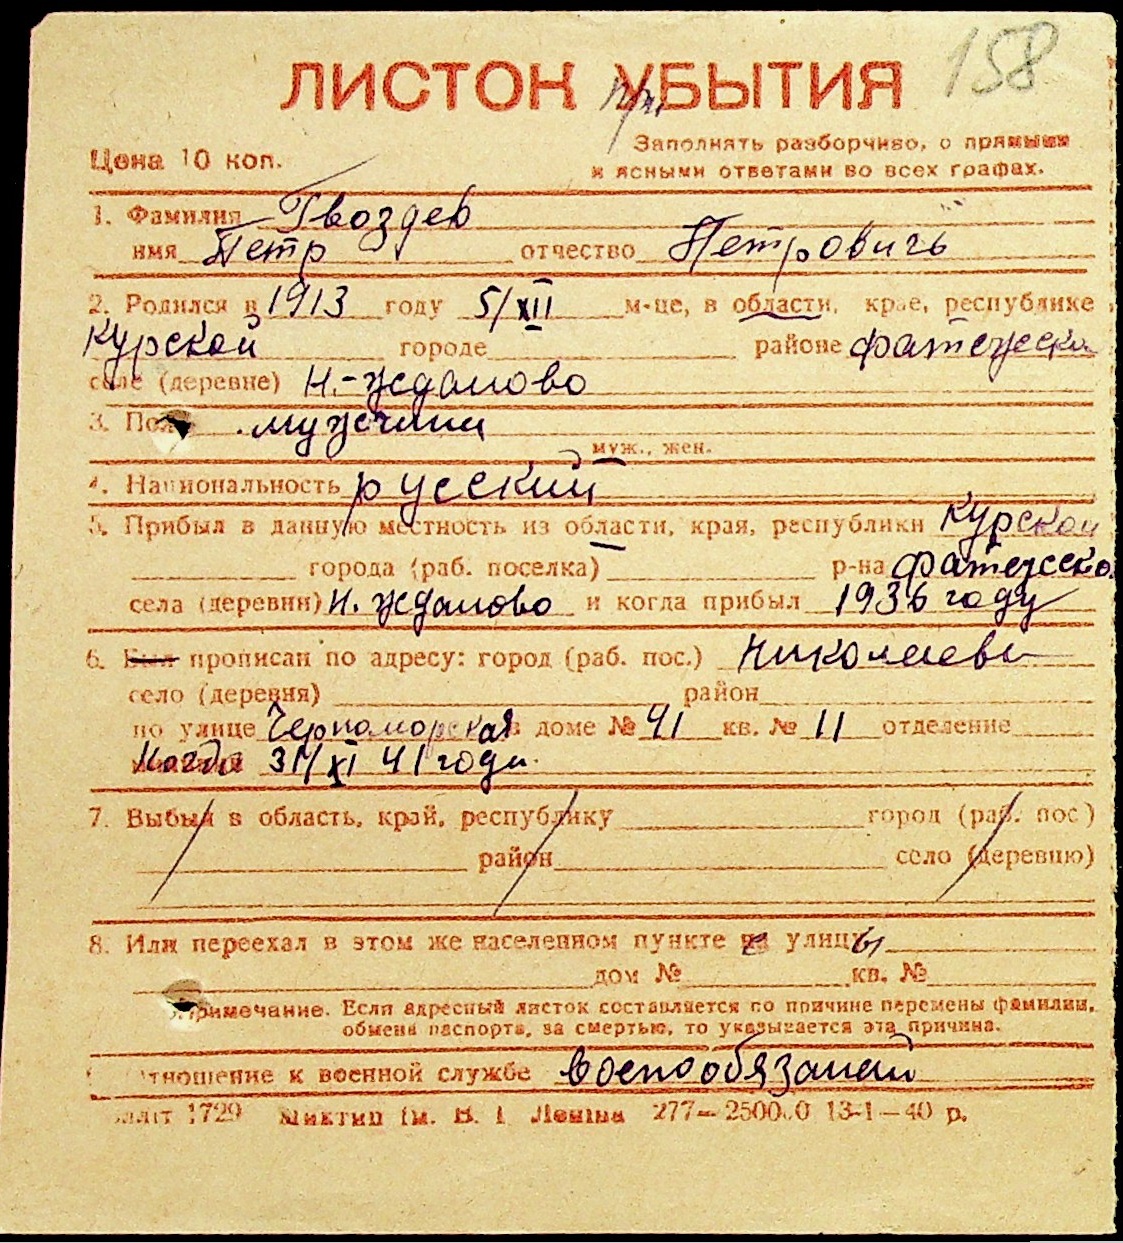 158
ЛИСТОК УБЫТИЯ
При
Цена 10 коп.
Заполнять разборчиво, с прямыми
и ясными ответами во всех графах.
1. Фамилия Гвоздев
имя Петр отчество Петровичь
2. Родился в 1913 году 5/XII м-це, в области, крае, республике
Курской городе районе Фатежски
селе (деревне) Н.-Жданово
3. Пол мужчини
муж., жен.
4. Национальность русский
5. Прибыл в данную местность из области, края, республики Курской
города (раб. поселка) р-на Фатежско
села (деревни) Н. Жданово и когда прибыл 1936 году
6. Был прописан по адресу: город (раб. пос.) Николаевь
село (деревня) район
по улице Черноморская в доме № 41 кв. № 11 отделение
Когда XI 41 года.
7. Выбыл в область, край, республику город (раб. пос)
район село (деревню)
8. Или переехал в этом же населенном пункте с улицы
дом № кв. №
Примечание. Если адресный листок составляется по причине перемены фамилии,
обмена паспорта, за смертью, то указывается эта причина.
Отношение к военной службе военообязаней
1729 им. В. І Леніна 277— 13-1—40 р.